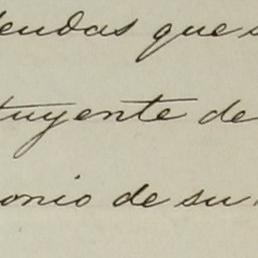 endas que s
tuyente de
onio de su